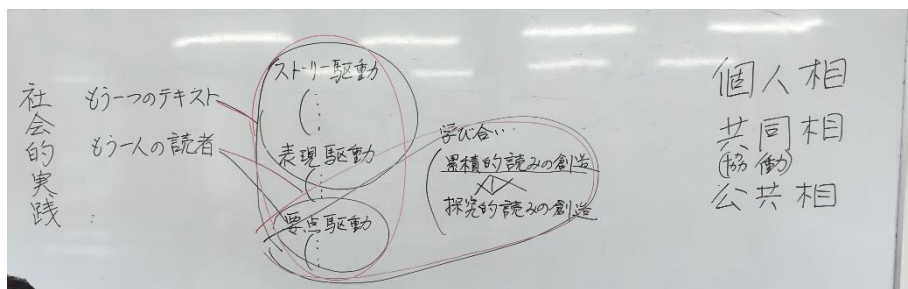 社会的実践
もう一つのテキスト
もう一人の読者
ストーリー駆動
表現駆動
要点駆動
学び合い…
累積的読みの創造
探究的読みの創造
個人相
共同相
(協働)
公共相